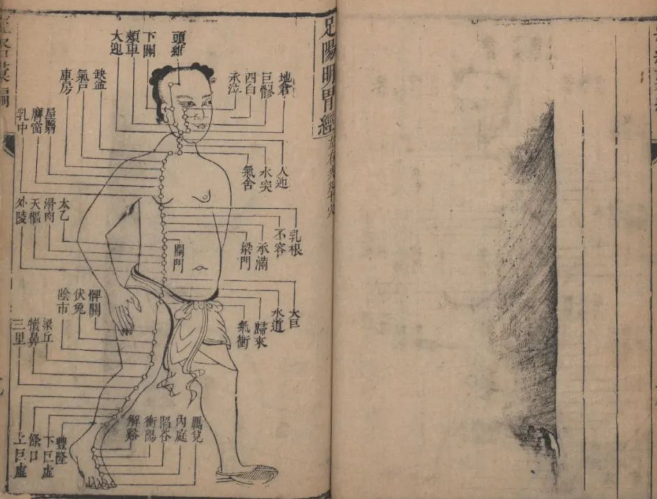 足陽明胃經
地倉
巨髎
四白
承泣
頭維
下關
頰車
大迎
缺盆
氣戶
庫房
屋翳
膺窗
乳中
人迎
水突
氣舍
乳根
不容
承滿
梁門
關門
太乙
滑肉
天樞
外陵
大巨
水道
歸來
氣衝
髀關
伏兔
陰市
梁丘
犢鼻
三里
厲兌
內庭
陷谷
衝陽
解谿
豐隆
下巨虛
條口
上巨虛